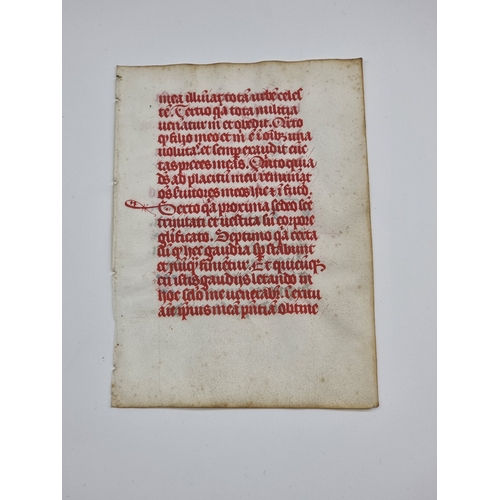 mea illuiat tota urbe celes
te. Tertio qa tota militia
uenatur m et obedit. Quarto
q filio meo et m e i oibz una
uoluta. et semp exaudit cuc
tas preces meas. Quinto quia
ds ad placitu meu remuniat
os seruitores meos hic et i futo.
Sexto qa proxima sedeo sce
trinitati et uestita su corpore
glificato. Septimo qa certa
su q hec gaudia sp stabunt
et nuq finietur. Et quicuqz
cu istis gaudijs letando in
hoc selo me uenerabit. i exitu
aie ipius mea pntia obtine